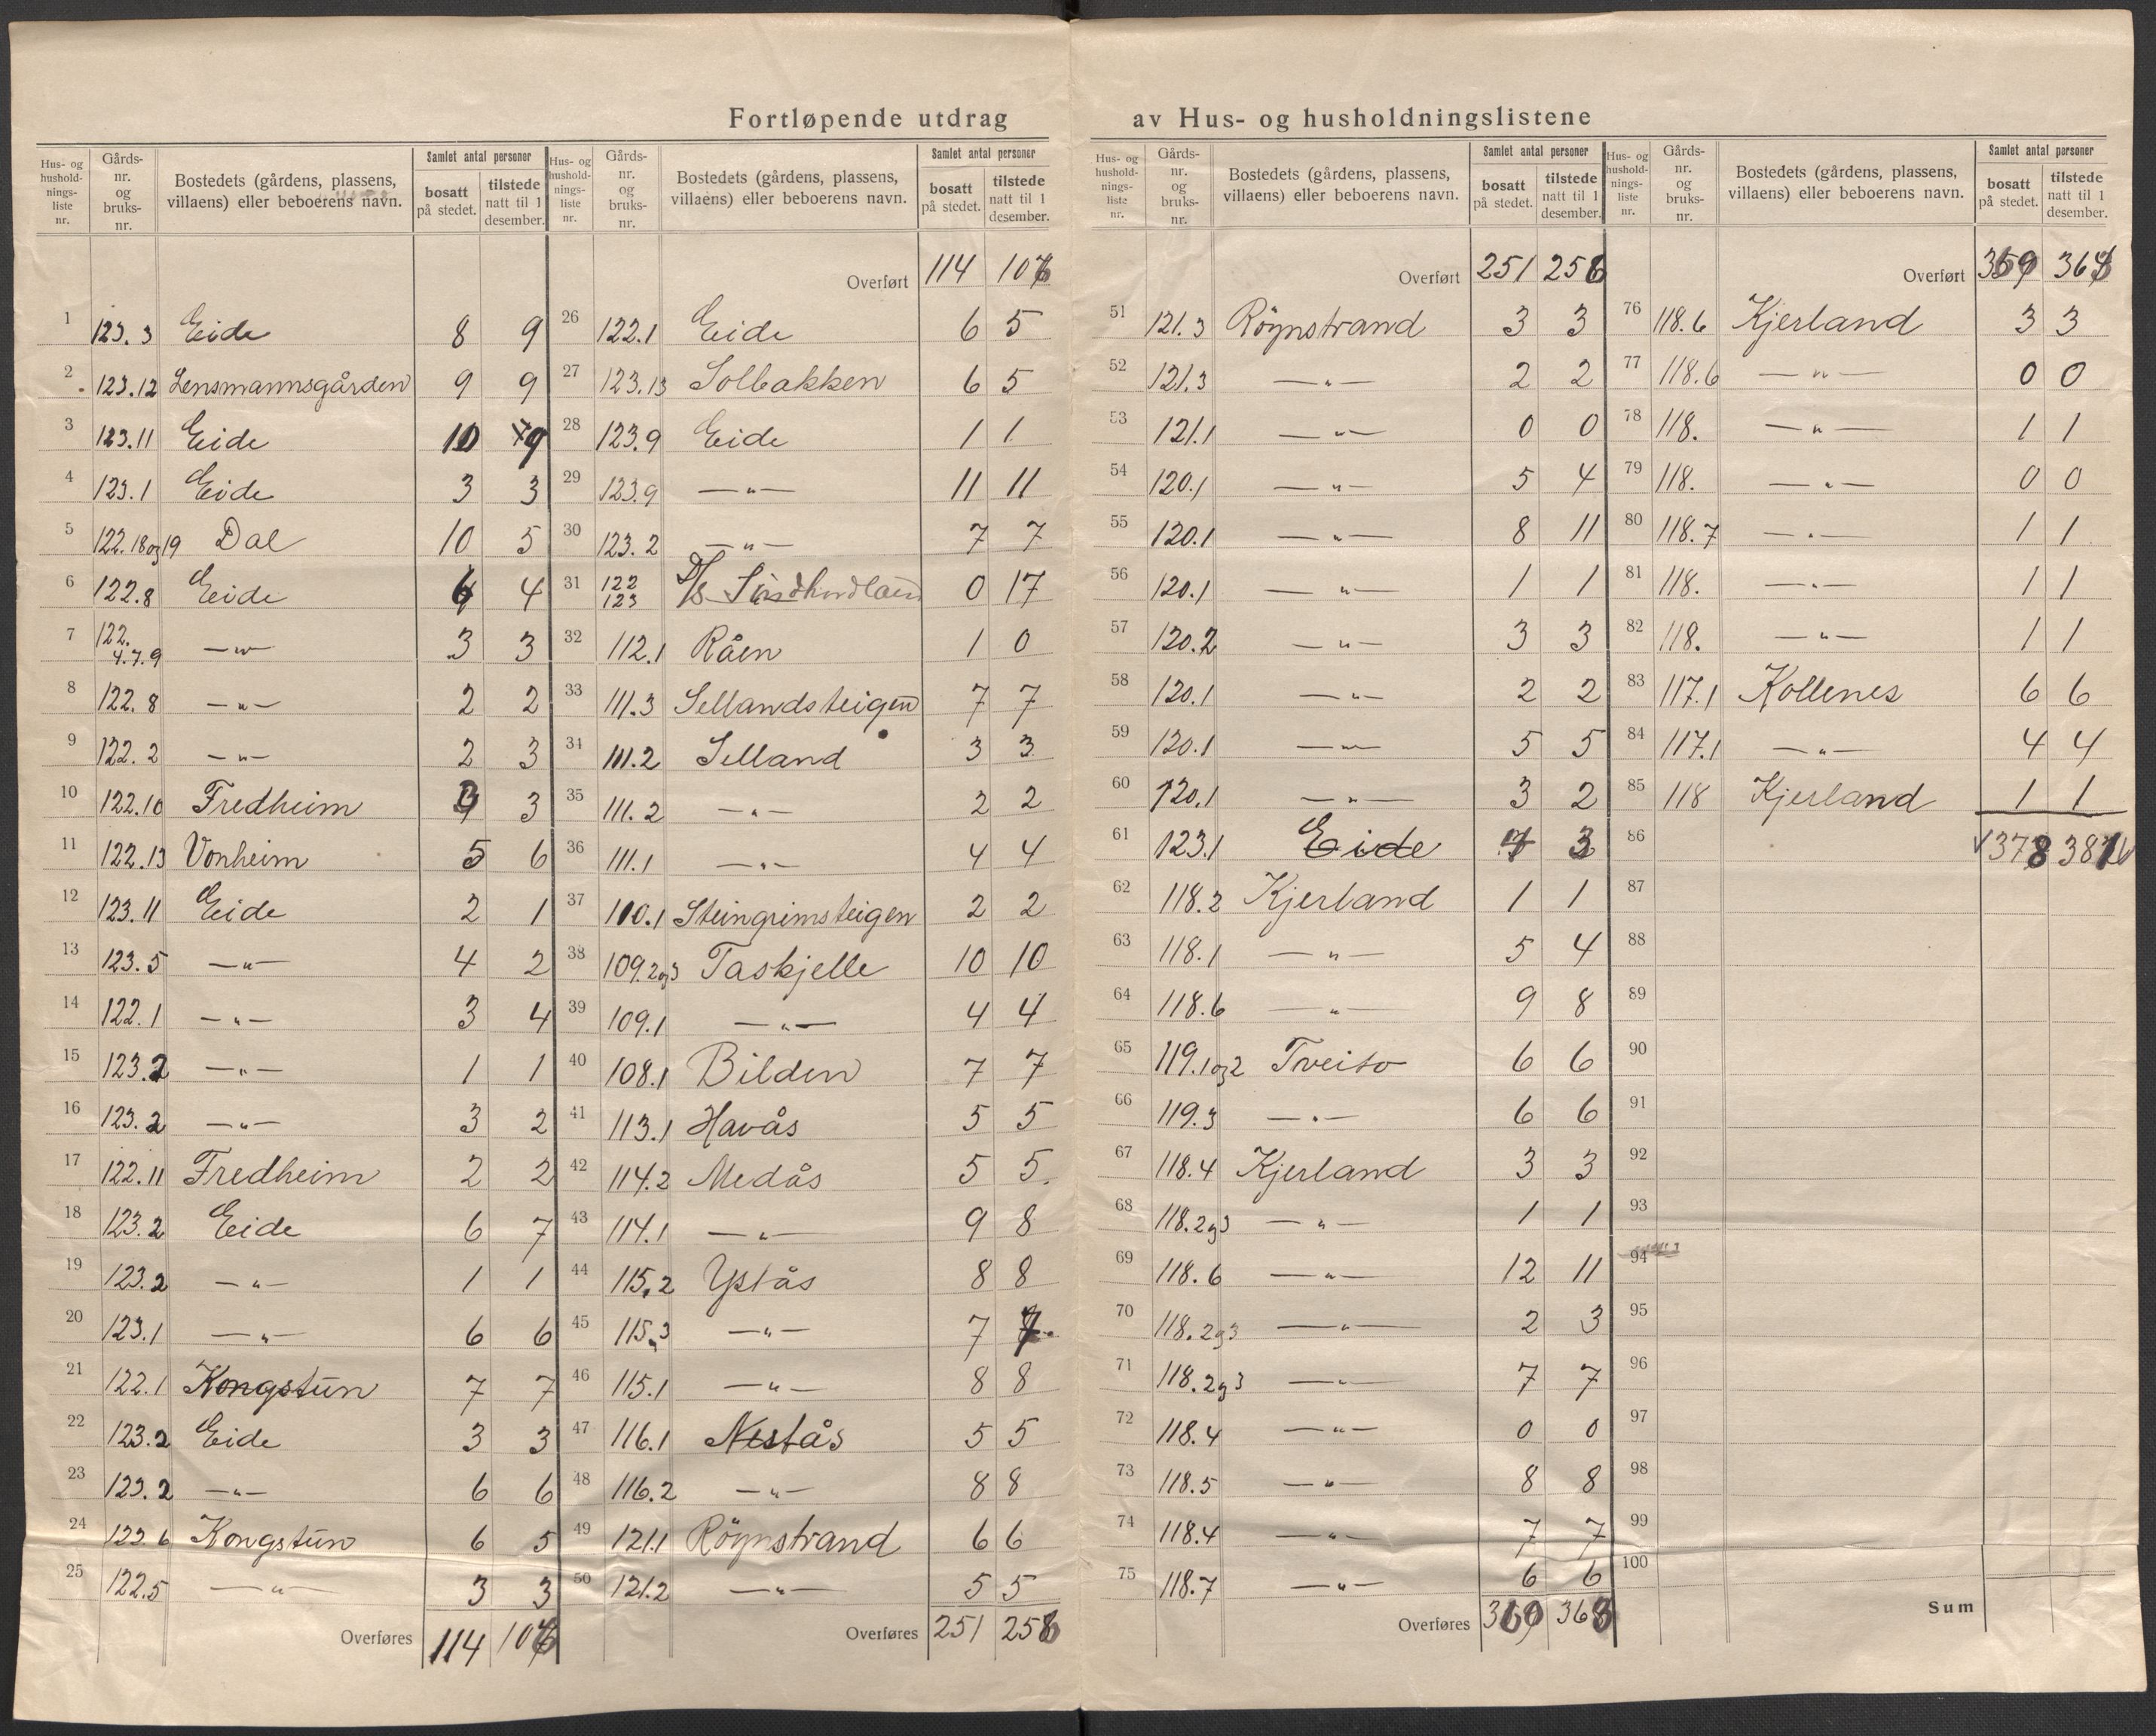 Fortløpende utdrag av Hus- og husholdningslistene
Hus- og hushold-nings-liste nr. Gårds-nr. og bruks-nr. Bostedets (gårdens, plassens, villaens) eller beboerens navn. Samlet antal personer bosatt på stedet. tilstede natt til 1 desember.
1 123.3 Eide 8 9
2 123.12 Lensmannsgården 9 9
3 123.11 Eide 10 9
4 123.1 Eide 3 3
5 122.18og19 Dal 10 5
6 122.8 Eide 4
7 122. 4.7.9 —"— 3 3
8 122.8 —"— 2 2
9 122.2 —"— 2 3
10 122.10 Fredheim 3
11 122.13 Vonheim 5 6
12 123.11 Eide 2 1
13 123.5 —"— 4 2
14 122.1 —"— 3 4
15 123.2 —"— 1 1
16 123.2 —"— 3 2
17 122.11 Fredheim 2 2
18 123.2 Eide 6 7
19 123.2 —"— 1 1
20 123.1 —"— 6 6
21 122.1 Kongstun 7 7
22 123.2 Eide 3 3
23 123.2 —"— 6 6
24 123.6 Kongstun 6 5
25 122.5 —"— 3 3
Overføres 114 106
Hus- og hushold-nings-liste nr. Gårds-nr. og bruks-nr. Bostedets (gårdens, plassens, villaens) eller beboerens navn. Samlet antal personer bosatt på stedet. tilstede natt til 1 desember.
Overført 114 106
26 122.1 Eide 6 5
27 123.13 Solbakken 6 5
28 123.9 Eide 1 1
29 123.9 —"— 11 11
30 123.2 —"— 7 7
31 122 123 D/S 0 17
32 112.1 Råen 1 0
33 111.3 Sellandsteigen 7 7
34 111.2 Selland 3 3
35 111.2 —"— 2 2
36 111.1 —"— 4 4
37 110.1 Steingrimsteigen 2 2
38 109.2og3 Taskjelle 10 10
39 109.1 —"— 4 4
40 108.1 Bilden 7 7
41 113.1 Havås 5 5
42 114.2 Medås 5 5.
43 114.1 —"— 9 8
44 115.2 Ystås 8 8
45 115.3 —"— 7 7
46 115.1 —"— 8 8
47 116.1 Nestås 5 5
48 116.2 —"— 8 8
49 121.1 Röynstrand 6 6
50 121.2 —"— 5 5
Overføres 251 256
Hus- og hushold-nings-liste nr. Gårds-nr. og bruks-nr. Bostedets (gårdens, plassens, villaens) eller beboerens navn. Samlet antal personer bosatt på stedet. tilstede natt til 1 desember.
Overført 251 256
51 121.3 Röynstrand 3 3
52 121.3 —"— 2 2
53 121.1 —"— 0 0
54 120.1 —"— 5 4
55 120.1 —"— 8 11
56 120.1 —"— 1 1
57 120.2 —"— 3 3
58 120.1 —"— 2 2
59 120.1 —"— 5 5
60 120.1 —"— 3 2
61 123.1 Eide 3
62 118.2 Kjerland 1 1
63 118.1 —"— 5 4
64 118.6 —"— 9 8
65 119.1og2 Tveito 6 6
66 119.3 —"— 6 6
67 118.4 Kjerland 3 3
68 118.2g3 —"— 1 1
69 118.6 —"— 12 11
70 118.2g3 —"— 2 3
71 118.2g3 —"— 7 7
72 118.4 —"— 0 0
73 118.5 —"— 8 8
74 118.4 —"— 7 7
75 118.7 —"— 6 6
Overføres 360 368
Hus- og hushold-nings-liste nr. Gårds-nr. og bruks-nr. Bostedets (gårdens, plassens, villaens) eller beboerens navn. Samlet antal personer bosatt på stedet. tilstede natt til 1 desember.
Overført
76 118.6 Kjerland 3 3
77 118.6 —"— 0 0
78 118. —"— 1 1
79 118. —"— 0 0
80 118.7 —"— 1 1
81 118. —"— 1 1
82 118. —"— 1 1
83 117.1 Kollenes 6 6
84 117.1 —"— 4 4
85 118 Kjerland 1 1
86 378 381
87
88
89
90
91
92
93
94
95
96
97
98
99
100
Sum